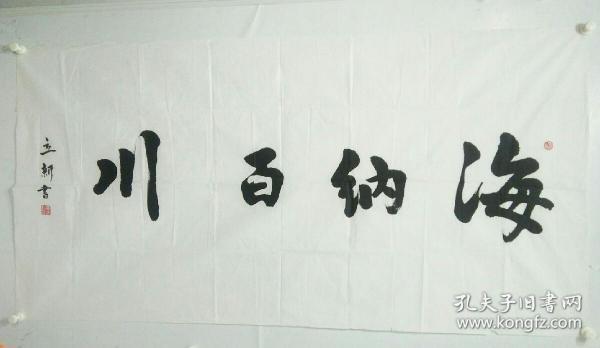 海纳百川
立新書
孔夫子旧書网
www.kongfz.com